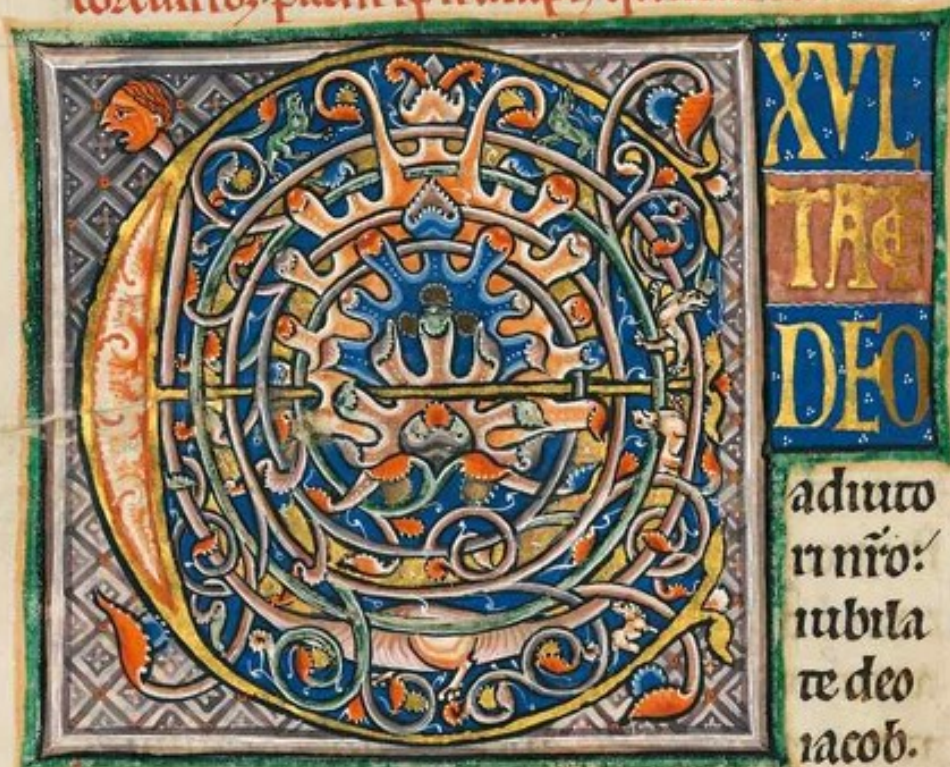 E
XVL
TATE
DEO
adiuto
ri nr̄o:
iubila
te deo
iacob.